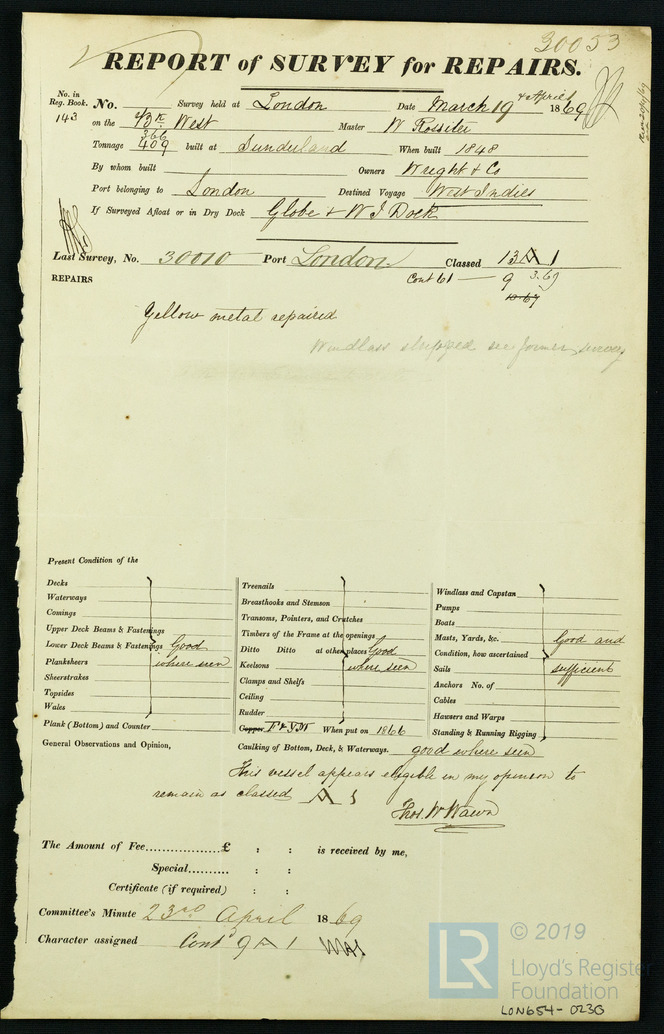 30053
REPORT of SURVEY for REPAIRS.
No. in
Reg. Book. No. Survey held at London Date March 19 & April 1869
143 on the West Master W Rossiter
366
Tonnage 409 built at Sunderland When built 1848
By whom built Owners Wright & Co
Port belonging to London Destined Voyage West Indies
If Surveyed Afloat or in Dry Dock Globe & W I Dock
Last Survey, No. 30010 Port London Classed 13 A 1
REPAIRS Cont 61 — 9 3.69
10.67
Yellow metal repaired
Windlass stripped see former survey
Present Condition of the
Decks
Waterways
Comings
Upper Deck Beams & Fastenings
Lower Deck Beams & Fastenings Good
Planksheers where seen
Sheerstrakes
Topsides
Wales
Plank (Bottom) and Counter
Treenails
Breasthooks and Stemson
Transoms, Pointers, and Crutches
Timbers of the Frame at the openings
Ditto Ditto at other places Good
Keelsons where seen
Clamps and Shelfs
Ceiling
Rudder
Copper F & Y.M When put on 1866
Windlass and Capstan
Pumps
Boats
Masts, Yards, &c. Good and
Condition, how ascertained
Sails sufficient
Anchors No. of
Cables
Hawsers and Warps
Standing & Running Rigging
General Observations and Opinion, Caulking of Bottom, Deck, & Waterways. good where seen
This vessel appears eligible in my opinion to
remain as classed A 1
Thos. W Wawn
The Amount of Fee..................£ : : is received by me,
Special.......... : :
Certificate (if required) : :
Committee's Minute 23rd April 1869
Character assigned Cont'd 9 A 1
LR
© 2019
Lloyd's Register
Foundation
LON654-0230